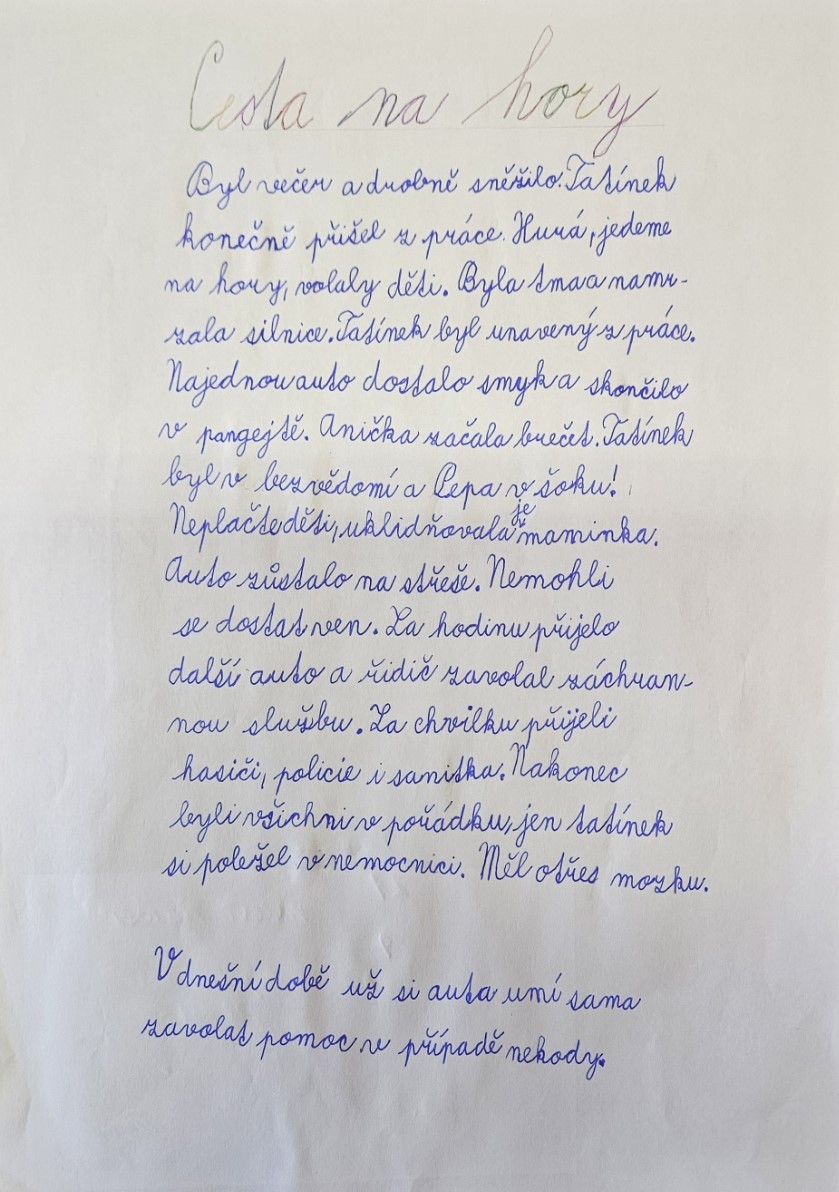 Cesta na hory
Byl večer a drobně sněžilo. Tatínek
konečně přišel z práce. Hurá, jedeme
na hory, volaly děti. Byla tma a namr-
zala silnice. Tatínek byl unavený z práce.
Najednou auto dostalo smyk a skončilo
v pangejtě. Anička začala brečet. Tatínek
byl v bezvědomí a Pepa v šoku!
Neplačte děti, uklidňovala je maminka.
Auto zůstalo na střeše. Nemohli
se dostat ven. Za hodinu přijelo
další auto a řidič zavolal záchran-
nou službu. Za chvilku přijeli
hasiči, policie i sanitka. Nakonec
byli všichni v pořádku, jen tatínek
si poležel v nemocnici. Měl otřes mozku.
V dnešní době už si auta umí sama
zavolat pomoc v případě nekody.